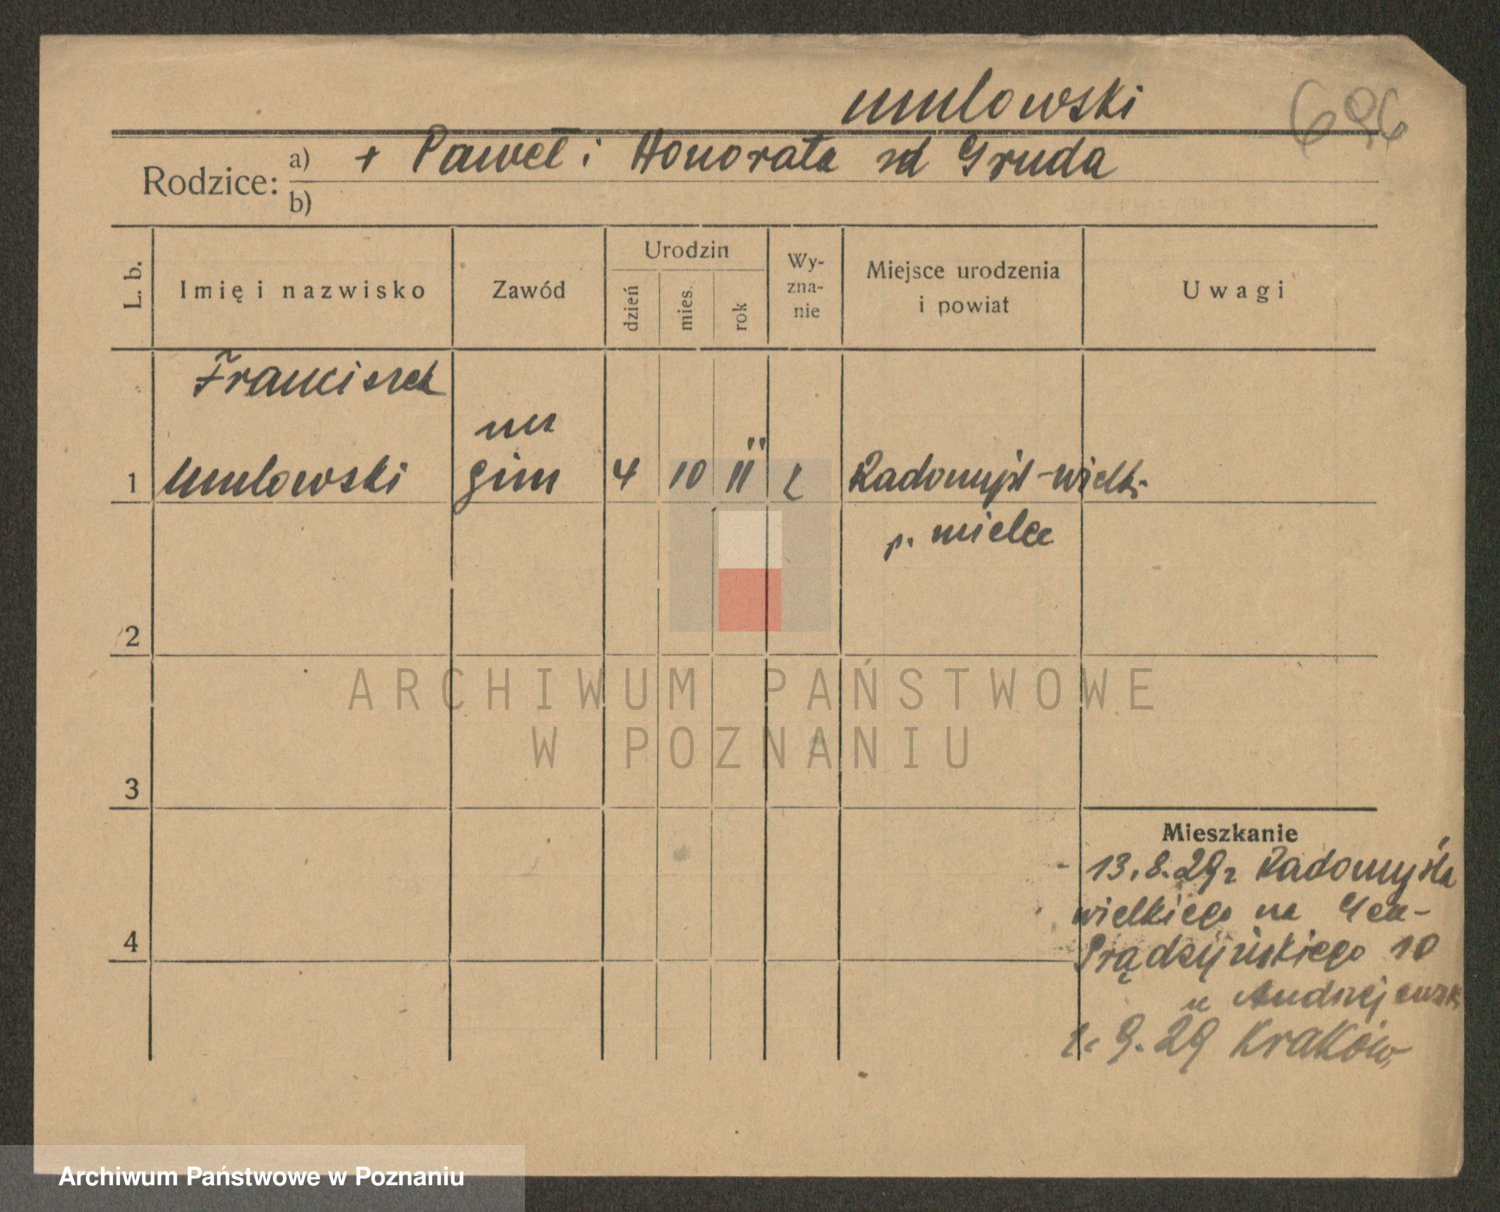 Umulowski
696
Rodzice: a) + Paweł i Honorata zd Gruda
b)
L. b.
Imię i nazwisko
Zawód
Urodzin
dzień
mies.
rok
Wy-
zna-
nie
Miejsce urodzenia
i powiat
Uwagi
Franciszek
ucz
1 Umulowski gim 4 10 11 Radomyśl-wielki
p. mielec
2
3
4
Mieszkanie
13.8.29 z Radomyśla
wielkiego na Gen-
Prądzyńskiego 10
u
1. 9. 29 Kraków,
ARCHIWUM PAŃSTWOWE
W POZNANIU
Archiwum Państwowe w Poznaniu